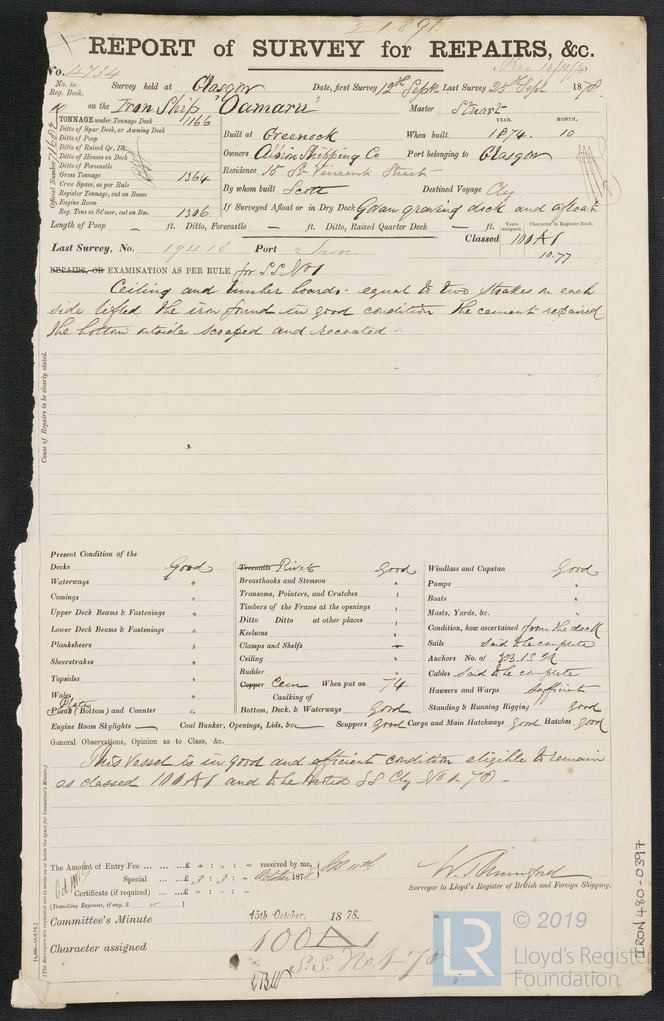 1891.
REPORT of SURVEY for REPAIRS, &c.
No. 4734
No. in Reg. Book. Survey held at Glasgow Date, first Survey 12th Sept. Last Survey 25th Sept 1878
on the Iron Ship "Oamaru" Master Stuart
TONNAGE under Tonnage Deck 1166
Ditto of Spar Deck, or Awning Deck
Ditto of Poop
Ditto of Raised Qr. Dk.
Ditto of Houses on Deck
Ditto of Forecastle
Gross Tonnage 1364
Crew Space, as per Rule
Register Tonnage, cut on Beam
Engine Room
Reg. Tons as St'mer, cut on Bm. 1306
Official Number
YEAR. MONTH.
Built at Greenock When built 1874. 10
Owners Albion Shipping Co Port belonging to Glasgow
Residence 15 St Vincent Street
By whom built Scott Destined Voyage Cly
If Surveyed Afloat or in Dry Dock Govan graving dock and afloat
Length of Poop - ft. Ditto, Forecastle - ft. Ditto, Raised Quarter Deck - ft.
Years assigned. Character in Register Book.
Classed 100A1
10.77
Last Survey, No. 19418 Port
REPAIRS, OR EXAMINATION AS PER RULE for S.S. No 1
Ceiling and timber boards equal to two strakes on each
side lifted the iron found in good condition the cement repaired
the bottom outside scraped and recoated -
Cause of Repairs to be clearly stated.
Present Condition of the
Decks Good
Waterways "
Comings "
Upper Deck Beams & Fastenings "
Lower Deck Beams & Fastenings "
Planksheers "
Sheerstrakes "
Topsides "
Wales "
Plates
Plank (Bottom) and Counter "
Treenails Rivets Good
Breasthooks and Stemson "
Transoms, Pointers, and Crutches "
Timbers of the Frame at the openings "
Ditto Ditto at other places "
Keelsons "
Clamps and Shelfs
Ceiling "
Rudder "
Copper Cem When put on 74
Caulking of
Bottom, Deck, & Waterways Good
Windlass and Capstan Good
Pumps "
Boats "
Masts, Yards, &c. "
Condition, how ascertained from the deck
Sails said to be complete
Anchors No. of 3B. 1S. 2K
Cables said to be complete
Hawsers and Warps Sufficient
Standing & Running Rigging Good
Engine Room Skylights — Coal Bunker, Openings, Lids, &c. Scuppers Good Cargo and Main Hatchways Good Hatches Good
General Observations, Opinion as to Class, &c.
This Vessel is in good and efficient condition eligible to remain
as classed 100A1 and to be noted SS Cly No 1. 78 -
The Amount of Entry Fee ... ... ...£ " : " : " received by me,
Special ... ...£ 3 : 3 : " October 1878
Certificate (if required) ... ...£ " : " : "
(Travelling Expenses, if any, £ )
Surveyor to Lloyd's Register of British and Foreign Shipping.
Committee's Minute 15th October, 1878.
Character assigned 100A1
S.S. No. 1 78
IRON 480-0397
LR
© 2019
Lloyd's Register
Foundation